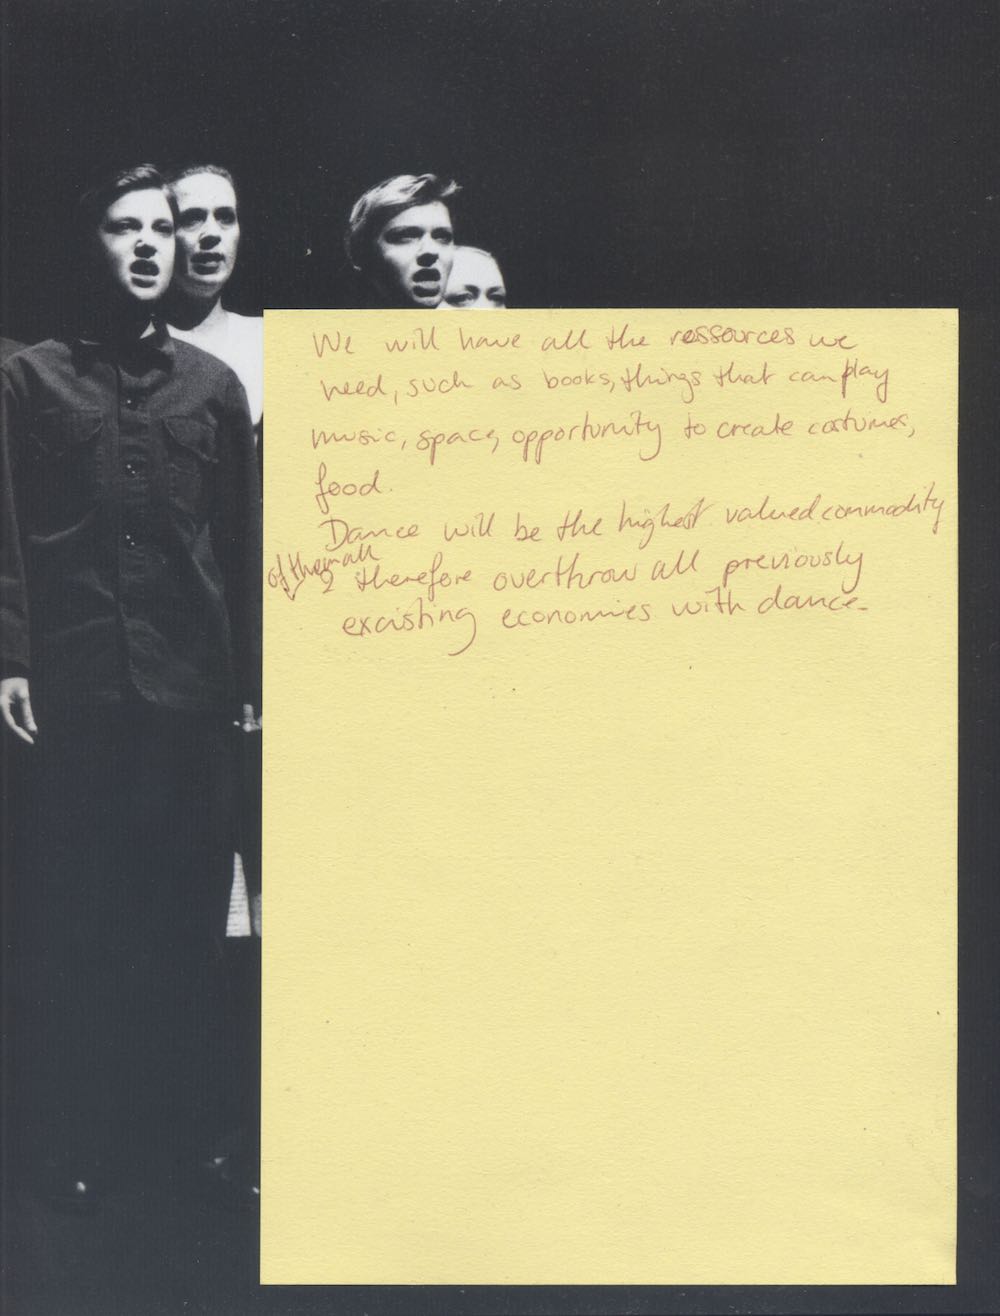 We will have all the ressources we
need, such as books, things that can play
music, space, opportunity to create costumes,
food.
Dance will be the highest valued commodity
of them all
& therefore overthrow all previously
excisting economies with dance.